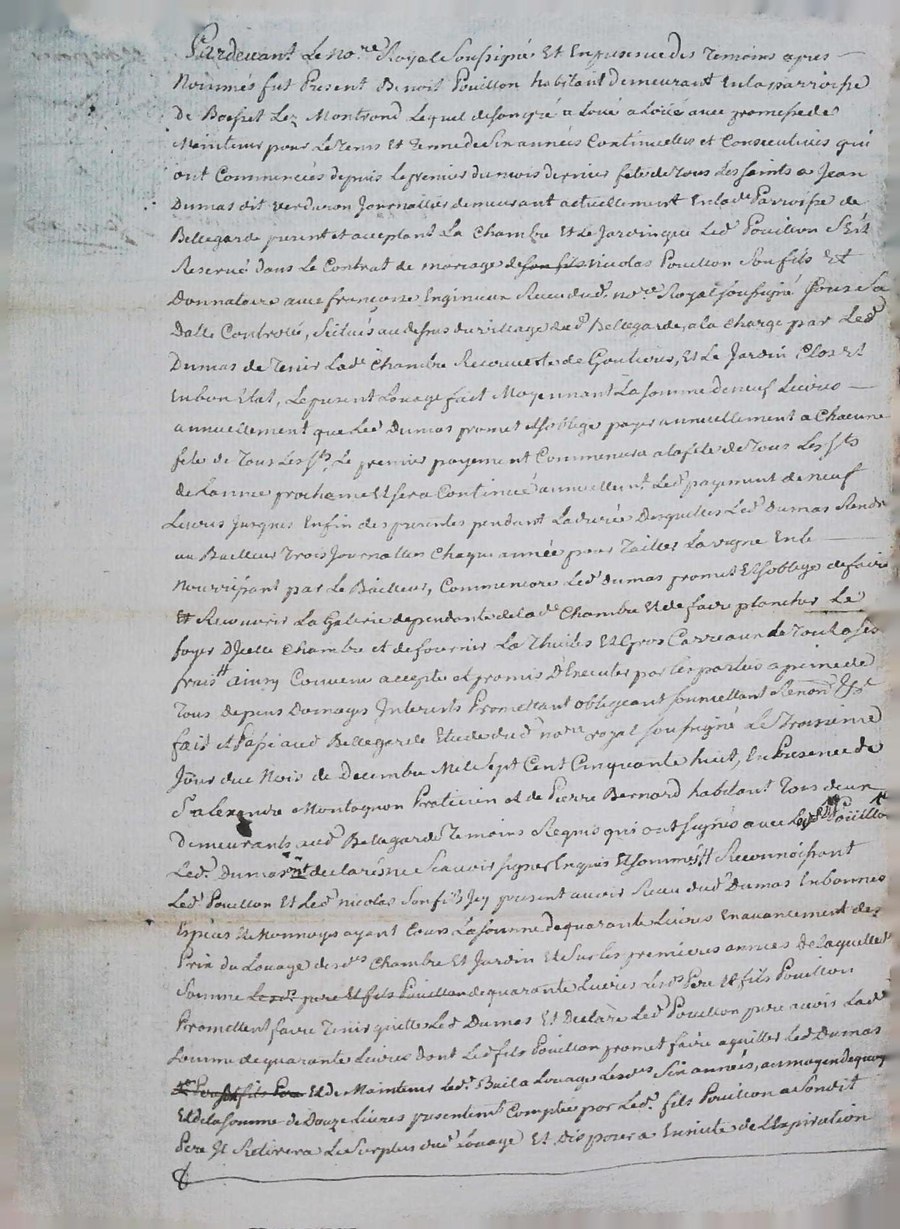 Pardevant Le No.re Royal Soussigné Et En presence des Temoins apres
Nommés fut Present Benoit Pouillon habitant demeurant En la parroisse
De Boisset Lez Montrond Lequel de son gré a Loué aloüé avec promesse de
Maintenir pour Le tems Et Terme de Six années Continuelles et Consecutives qui
ont Commencées depuis Le premier du mois dernier fete de Tous Les Saints a Jean
Dumas dit verduron Journallier demeurant actuellement En lad.e Parroisse de
Bellegarde present et acceptant La Chambre Et Le Jardin que Led. Pouillon S'est
Reservé dans Le Contrat de mariage de son fils nicolas Pouillon Son fils Et
Donnataire avec françoise Enginieur Receu dud. no.re Royal soussigné Sous Sa
Datte Controllé, Scitués au dessus du village dud. Bellegarde, a la Charge par Led.
Dumas de Tenir Lad.e Chambre Recouverte de Goutieres, Et Le Jardin Clos Et
En bon Etat, Le present Louage fait Moyennant La somme de neuf Livres
annuellement que Led. Dumas promet Et s'oblige payer annuellement a Chacune
fete de Tous Les S.ts Le premier payement Commencera a la fete de Tous Les S.ts
de L'année prochaine Et sera Continué annuellem.t Led. payement de neuf
Livres Jusques En fin des presentes pendant La durée Desquelles Led. Dumas Rendra
au Bailleur Trois Journallées Chaque année pour Tailler La vigne En le
Nourrissant par Le Bailleur, Comme encore Led. Dumas promet Et s'oblige de faire
Et Recouvrir La Galerie dependante de lad.e Chambre Et de faire plancher Le
foyer D'Jcelle Chambre et de fournir La Thuiles Et Gros Carreaux Le Tout a ses
frais Ainsy Convenu accepté et promis D'Executer par les parties a peine de
Tous depens Domages Interests Promettant obligeant soumettant Renon.t &.a
fait Et Passé aud. Bellegarde Etude dud. no.re royal soussigné Le Troisieme
Jour du Mois de Decembre Mil Sept Cent Cinquante huit, En Presence de
S.r alexandre Montagnon Praticien et de Pierre Bernard habitant Tous deux
Demeurants aud. Bellegarde Temoins Requis qui ont signés avec Pouillon
Led. Dumas declaré ne Scavoir signer Enquis Et sommés Reconnoissant
Led. Pouillon Et Led. nicolas Son fils Jcy present avoir Receu dud. Dumas En bonnes
Especes Et Monnoye ayant Cours La somme de quarante Livres En avancement de
Prix du Louage desd.s Chambre Et Jardin Et Sur les premieres années de laquelle
Somme Lesd.s pere Et fils Pouillon de quarante Livres Lesd.s Pere Et fils Pouillon
Promettent faire Tenir quitte Led. Dumas Et Declare Led. Pouillon pere avoir Lad.e
Somme de quarante Livres dont Led. fils Pouillon promet faire a quitter Led. Dumas
Et de Maintenir Led. Bail a Louage Lesd.s Six années, au moyen de quoy
Et de la somme de Douze Livres presentem.t Comptée par Led. fils Pouillon a Sondit
Pere Jl Retirera Le Surplus dud. Louage Et Disposera Ensuite de L'Expiration